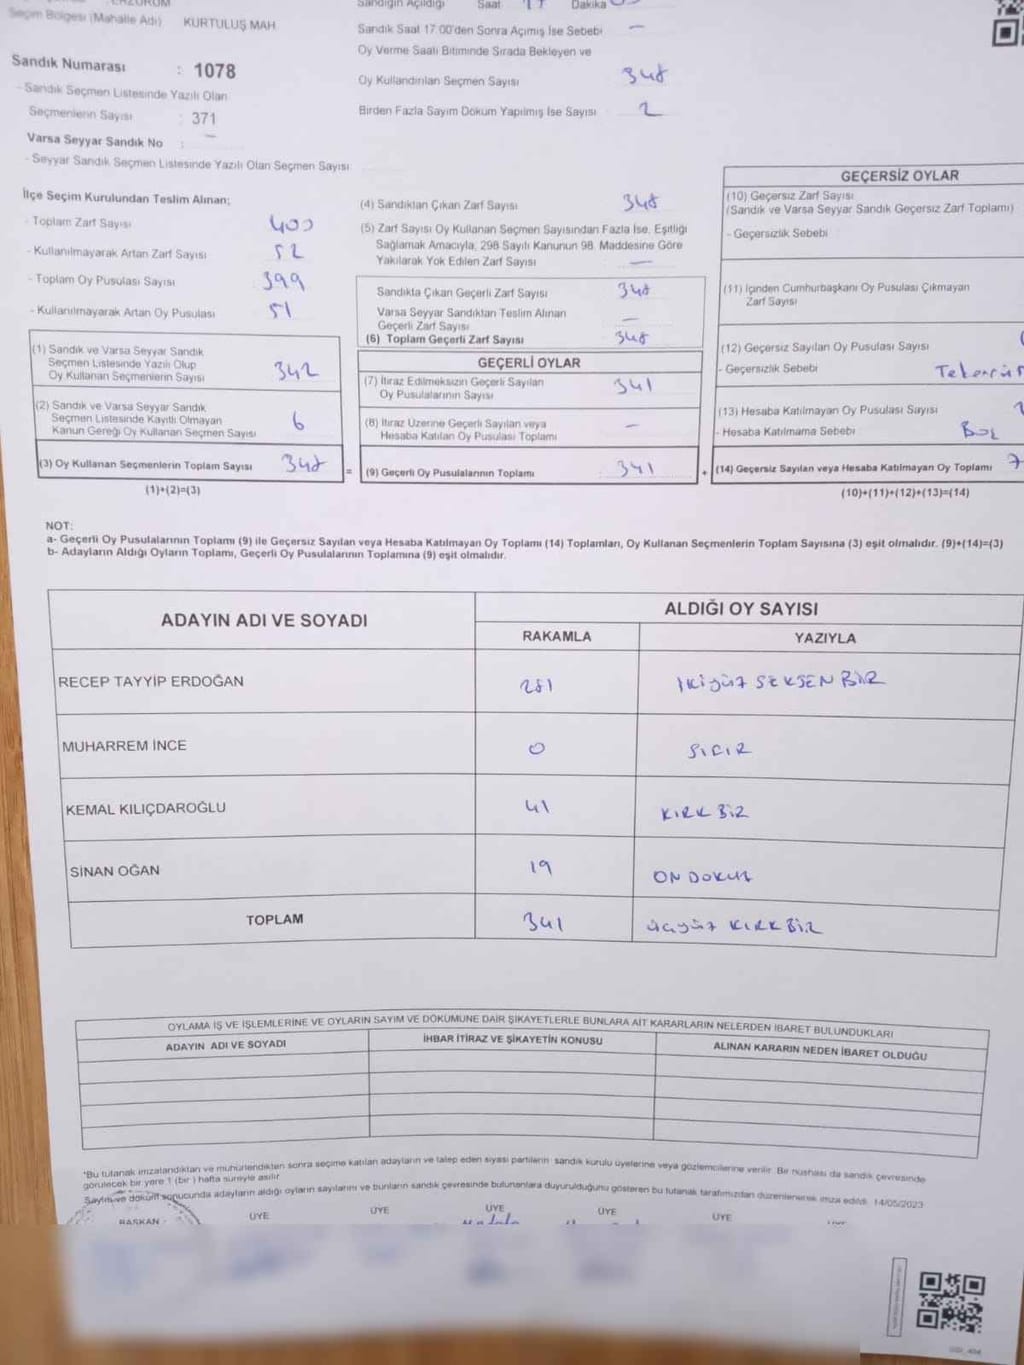 ERZURUM
Seçim Bölgesi (Mahalle Adı) KURTULUŞ MAH.
Sandık Numarası : 1078
- Sandık Seçmen Listesinde Yazılı Olan
Seçmenlerin Sayısı : 371
Varsa Seyyar Sandık No : —
- Seyyar Sandık Seçmen Listesinde Yazılı Olan Seçmen Sayısı
Sandığın Açıldığı Saat 17 Dakika
Sandık Saat 17:00'den Sonra Açımış İse Sebebi —
Oy Verme Saati Bitiminde Sırada Bekleyen ve
Oy Kullandırılan Seçmen Sayısı 348
Birden Fazla Sayım Döküm Yapılmış İse Sayısı 2
İlçe Seçim Kurulundan Teslim Alınan;
- Toplam Zarf Sayısı 400
- Kullanılmayarak Artan Zarf Sayısı 52
- Toplam Oy Pusulası Sayısı 399
- Kullanılmayarak Artan Oy Pusulası 51
(1) Sandık ve Varsa Seyyar Sandık
Seçmen Listesinde Yazılı Olup
Oy Kullanan Seçmenlerin Sayısı 342
(2) Sandık ve Varsa Seyyar Sandık
Seçmen Listesinde Kayıtlı Olmayan
Kanun Gereği Oy Kullanan Seçmen Sayısı 6
(3) Oy Kullanan Seçmenlerin Toplam Sayısı 348 =
(1)+(2)=(3)
(4) Sandıktan Çıkan Zarf Sayısı 348
(5) Zarf Sayısı Oy Kullanan Seçmen Sayısından Fazla İse, Eşitliği
Sağlamak Amacıyla, 298 Sayılı Kanunun 98. Maddesine Göre
Yakılarak Yok Edilen Zarf Sayısı —
Sandıkta Çıkan Geçerli Zarf Sayısı 348
Varsa Seyyar Sandıktan Teslim Alınan
Geçerli Zarf Sayısı —
(6) Toplam Geçerli Zarf Sayısı 348
GEÇERLİ OYLAR
(7) İtiraz Edilmeksizin Geçerli Sayılan
Oy Pusulalarının Sayısı 341
(8) İtiraz Üzerine Geçerli Sayılan veya
Hesaba Katılan Oy Pusulası Toplamı —
(9) Geçerli Oy Pusulalarının Toplamı 341 +
GEÇERSİZ OYLAR
(10) Geçersiz Zarf Sayısı
(Sandık ve Varsa Seyyar Sandık Geçersiz Zarf Toplamı)
- Geçersizlik Sebebi
(11) İçinden Cumhurbaşkanı Oy Pusulası Çıkmayan
Zarf Sayısı
(12) Geçersiz Sayılan Oy Pusulası Sayısı
- Geçersizlik Sebebi
(13) Hesaba Katılmayan Oy Pusulası Sayısı
- Hesaba Katılmama Sebebi
(14) Geçersiz Sayılan veya Hesaba Katılmayan Oy Toplamı 7
(10)+(11)+(12)+(13)=(14)
NOT:
a- Geçerli Oy Pusulalarının Toplamı (9) ile Geçersiz Sayılan veya Hesaba Katılmayan Oy Toplamı (14) Toplamları, Oy Kullanan Seçmenlerin Toplam Sayısına (3) eşit olmalıdır. (9)+(14)=(3)
b- Adayların Aldığı Oyların Toplamı, Geçerli Oy Pusulalarının Toplamına (9) eşit olmalıdır.
ADAYIN ADI VE SOYADI
ALDIĞI OY SAYISI
RAKAMLA YAZIYLA
RECEP TAYYİP ERDOĞAN 281 İKİYÜZ SEKSEN BİR
MUHARREM İNCE 0 SIFIR
KEMAL KILIÇDAROĞLU 41 KIRK BİR
SİNAN OĞAN 19 ON DOKUZ
TOPLAM 341 ÜÇYÜZ KIRK BİR
OYLAMA İŞ VE İŞLEMLERİNE VE OYLARIN SAYIM VE DÖKÜMÜNE DAİR ŞİKAYETLERLE BUNLARA AİT KARARLARIN NELERDEN İBARET BULUNDUKLARI
ADAYIN ADI VE SOYADI İHBAR İTİRAZ VE ŞİKAYETİN KONUSU ALINAN KARARIN NEDEN İBARET OLDUĞU
*Bu tutanak imzalandıktan ve mühürlendikten sonra seçime katılan adayların ve talep eden siyasi partilerin sandık kurulu üyelerine veya gözlemcilerine verilir. Bir nüshası da sandık çevresinde
görülecek bir yere 1 (bir) hafta süreyle asılır.
Sayım ve döküm sonucunda adayların aldığı oyların sayılarını ve bunların sandık çevresinde bulunanlara duyurulduğunu gösteren bu tutanak tarafımızdan düzenlenerek imza edildi. 14/05/2023
BAŞKAN ÜYE ÜYE ÜYE ÜYE ÜYE ÜYE